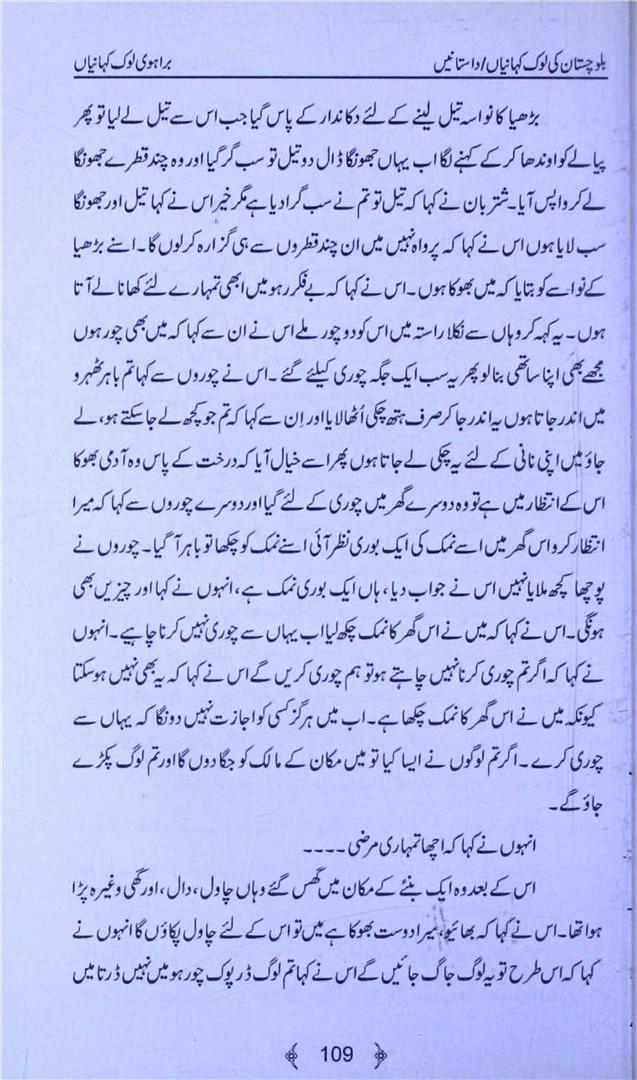 بلوچستان کی لوک کہانیاں/داستانیں براہوی لوک کہانیاں
بڑھیا کا نواسہ تیل لینے کے لئے دکاندار کے پاس گیا جب اس سے تیل لے لیا تو پھر
پیالے کو اوندھا کر کے کہنے لگا اب یہاں جھونگا ڈال دو تیل تو سب گر گیا اور وہ چند قطرے جھونگا
لے کر واپس آیا۔ شتربان نے کہا کہ تیل تو تم نے سب گرا دیا ہے مگر خیر اس نے کہا تیل اور جھونگا
سب لایا ہوں اس نے کہا کہ پرواہ نہیں میں ان چند قطروں سے ہی گزارہ کر لوں گا۔ اسنے بڑھیا
کے نواسے کو بتایا کہ میں بھوکا ہوں۔ اس نے کہا کہ بے فکر رہو میں ابھی تمہارے لئے کھانا لے آتا
ہوں۔ یہ کہہ کر وہاں سے نکلا راستہ میں اس کو دو چور ملے اس نے ان سے کہا کہ میں بھی چور ہوں
مجھے بھی اپنا ساتھی بنا لو پھر یہ سب ایک جگہ چوری کیلئے گئے ۔ اس نے چوروں سے کہا تم باہر ٹھہرو
میں اندر جاتا ہوں یہ اندر جا کر صرف ہتھ چکی اُٹھا لایا اور اِن سے کہا کہ تم جو کچھ لے جا سکتے ہو، لے
جاؤ میں اپنی نانی کے لئے یہ چکی لے جاتا ہوں پھر اسے خیال آیا کہ درخت کے پاس وہ آدمی بھوکا
اس کے انتظار میں ہے تو وہ دوسرے گھر میں چوری کے لئے گیا اور دوسرے چوروں سے کہا کہ میرا
انتظار کرو اس گھر میں اسے نمک کی ایک بوری نظر آئی اسنے نمک کو چکھا تو باہر آ گیا۔ چوروں نے
پوچھا کچھ ملا یا نہیں اس نے جواب دیا، ہاں ایک بوری نمک ہے، انہوں نے کہا اور چیزیں بھی
ہونگی۔ اس نے کہا کہ میں نے اس گھر کا نمک چکھ لیا اب یہاں سے چوری نہیں کرنا چاہیے۔ انہوں
نے کہا کہ اگر تم چوری کرنا نہیں چاہتے ہو تو ہم چوری کریں گے اس نے کہا کہ یہ بھی نہیں ہو سکتا
کیونکہ میں نے اس گھر کا نمک چکھا ہے۔ اب میں ہرگز کسی کو اجازت نہیں دونگا کہ یہاں سے
چوری کرے۔ اگر تم لوگوں نے ایسا کیا تو میں مکان کے مالک کو جگا دوں گا اور تم لوگ پکڑے
جاؤ گے۔
انہوں نے کہا کہ اچھا تمہاری مرضی ۔۔۔۔
اس کے بعد وہ ایک بنئے کے مکان میں گھس گئے وہاں چاول، دال، اور گھی وغیرہ پڑا
ہوا تھا۔ اس نے کہا کہ بھائیو، میرا دوست بھوکا ہے میں تو اس کے لئے چاول پکاؤں گا انہوں نے
کہا کہ اس طرح تو یہ لوگ جاگ جائیں گے اس نے کہا تم لوگ ڈرپوک چور ہو میں نہیں ڈرتا میں
109